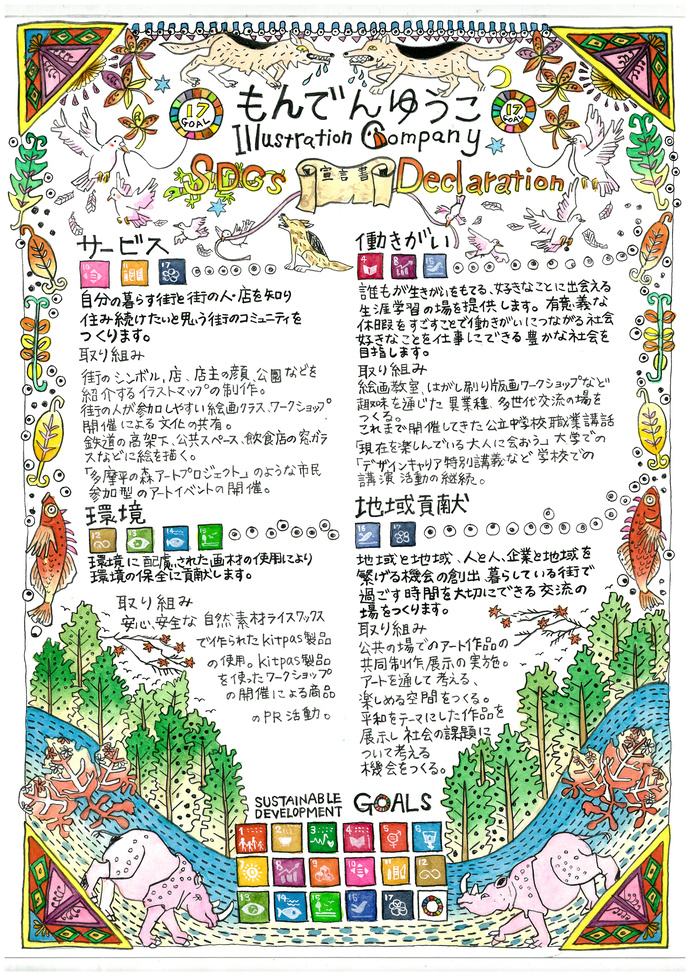 もんでんゆうこ
Illustration Company
17
GOAL
17
GOAL
SDGs
宣言書
Declaration
サービス
10
11
17
自分の暮らす街と街の人・店を知り
住み続けたいと思う街のコミュニティを
つくります。
取り組み
街のシンボル,店、店主の顔、公園などを
紹介するイラストマップの制作。
街の人が参加しやすい絵画クラス、ワークショップ
開催による文化の共有。
鉄道の高架下、公共スペース、飲食店の窓ガラ
スなどに絵を描く。
「多摩平の森アートプロジェクト」のような市民
参加型のアートイベントの開催。
働きがい
4
8
誰もが生きがいをもてる、好きなことに出会える
生涯学習の場を提供します。有意義な
休暇をすごすことで働きがいにつながる社会
好きなことを仕事にできる豊かな社会を
目指します。
取り組み
絵画教室、はがし刷り版画ワークショップなど
趣味を通じた異業種、多世代交流の場を
つくる。
これまで開催してきた公立中学校職業講話
「現在を楽しんでいる大人に会おう」大学での
「デザインキャリア特別講義など学校での
講演活動の継続。
環境
12
13
14
環境に配慮された画材の使用により
環境の保全に貢献します。
取り組み
安心、安全な自然素材ライスワックス
で作られたkitpas製品
の使用。kitpas製品
を使ったワークショップ
の開催による商品
のPR活動。
地域貢献
16
17
地域と地域、人と人、企業と地域を
繋げる機会の創出、暮らしている街で
過ごす時間を大切にできる交流の
場をつくります。
取り組み
公共の場でのアート作品の
共同制作、展示の実施。
アートを通して考える、
楽しめる空間をつくる。
平和をテーマにした作品を
展示し社会の課題に
ついて考える
機会をつくる。
SUSTAINABLE
DEVELOPMENT
GOALS
1
2
3
4
5
6
7
8
9
10
11
12
13
14
15
16
17